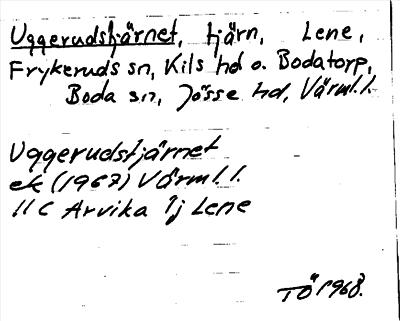 Uggerudstjärnet, tjärn, Lene,
Frykeruds sn, Kils hd o. Bodatorp,
Boda sn, Jösse hd, Värml. l.
Uggerudstjärnet
ek (1967) Värml. l.
11 C Arvika 1j Lene
TÖ 1968.